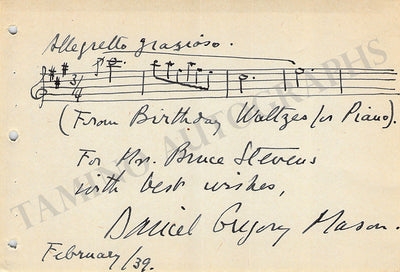 Allegretto grazioso.
3/4
(From Birthday Waltzes for Piano).
For Mrs. Bruce Stevens
with best wishes,
Daniel Gregory Mason.
February/39.
TAMINO AUTOGRAPHS